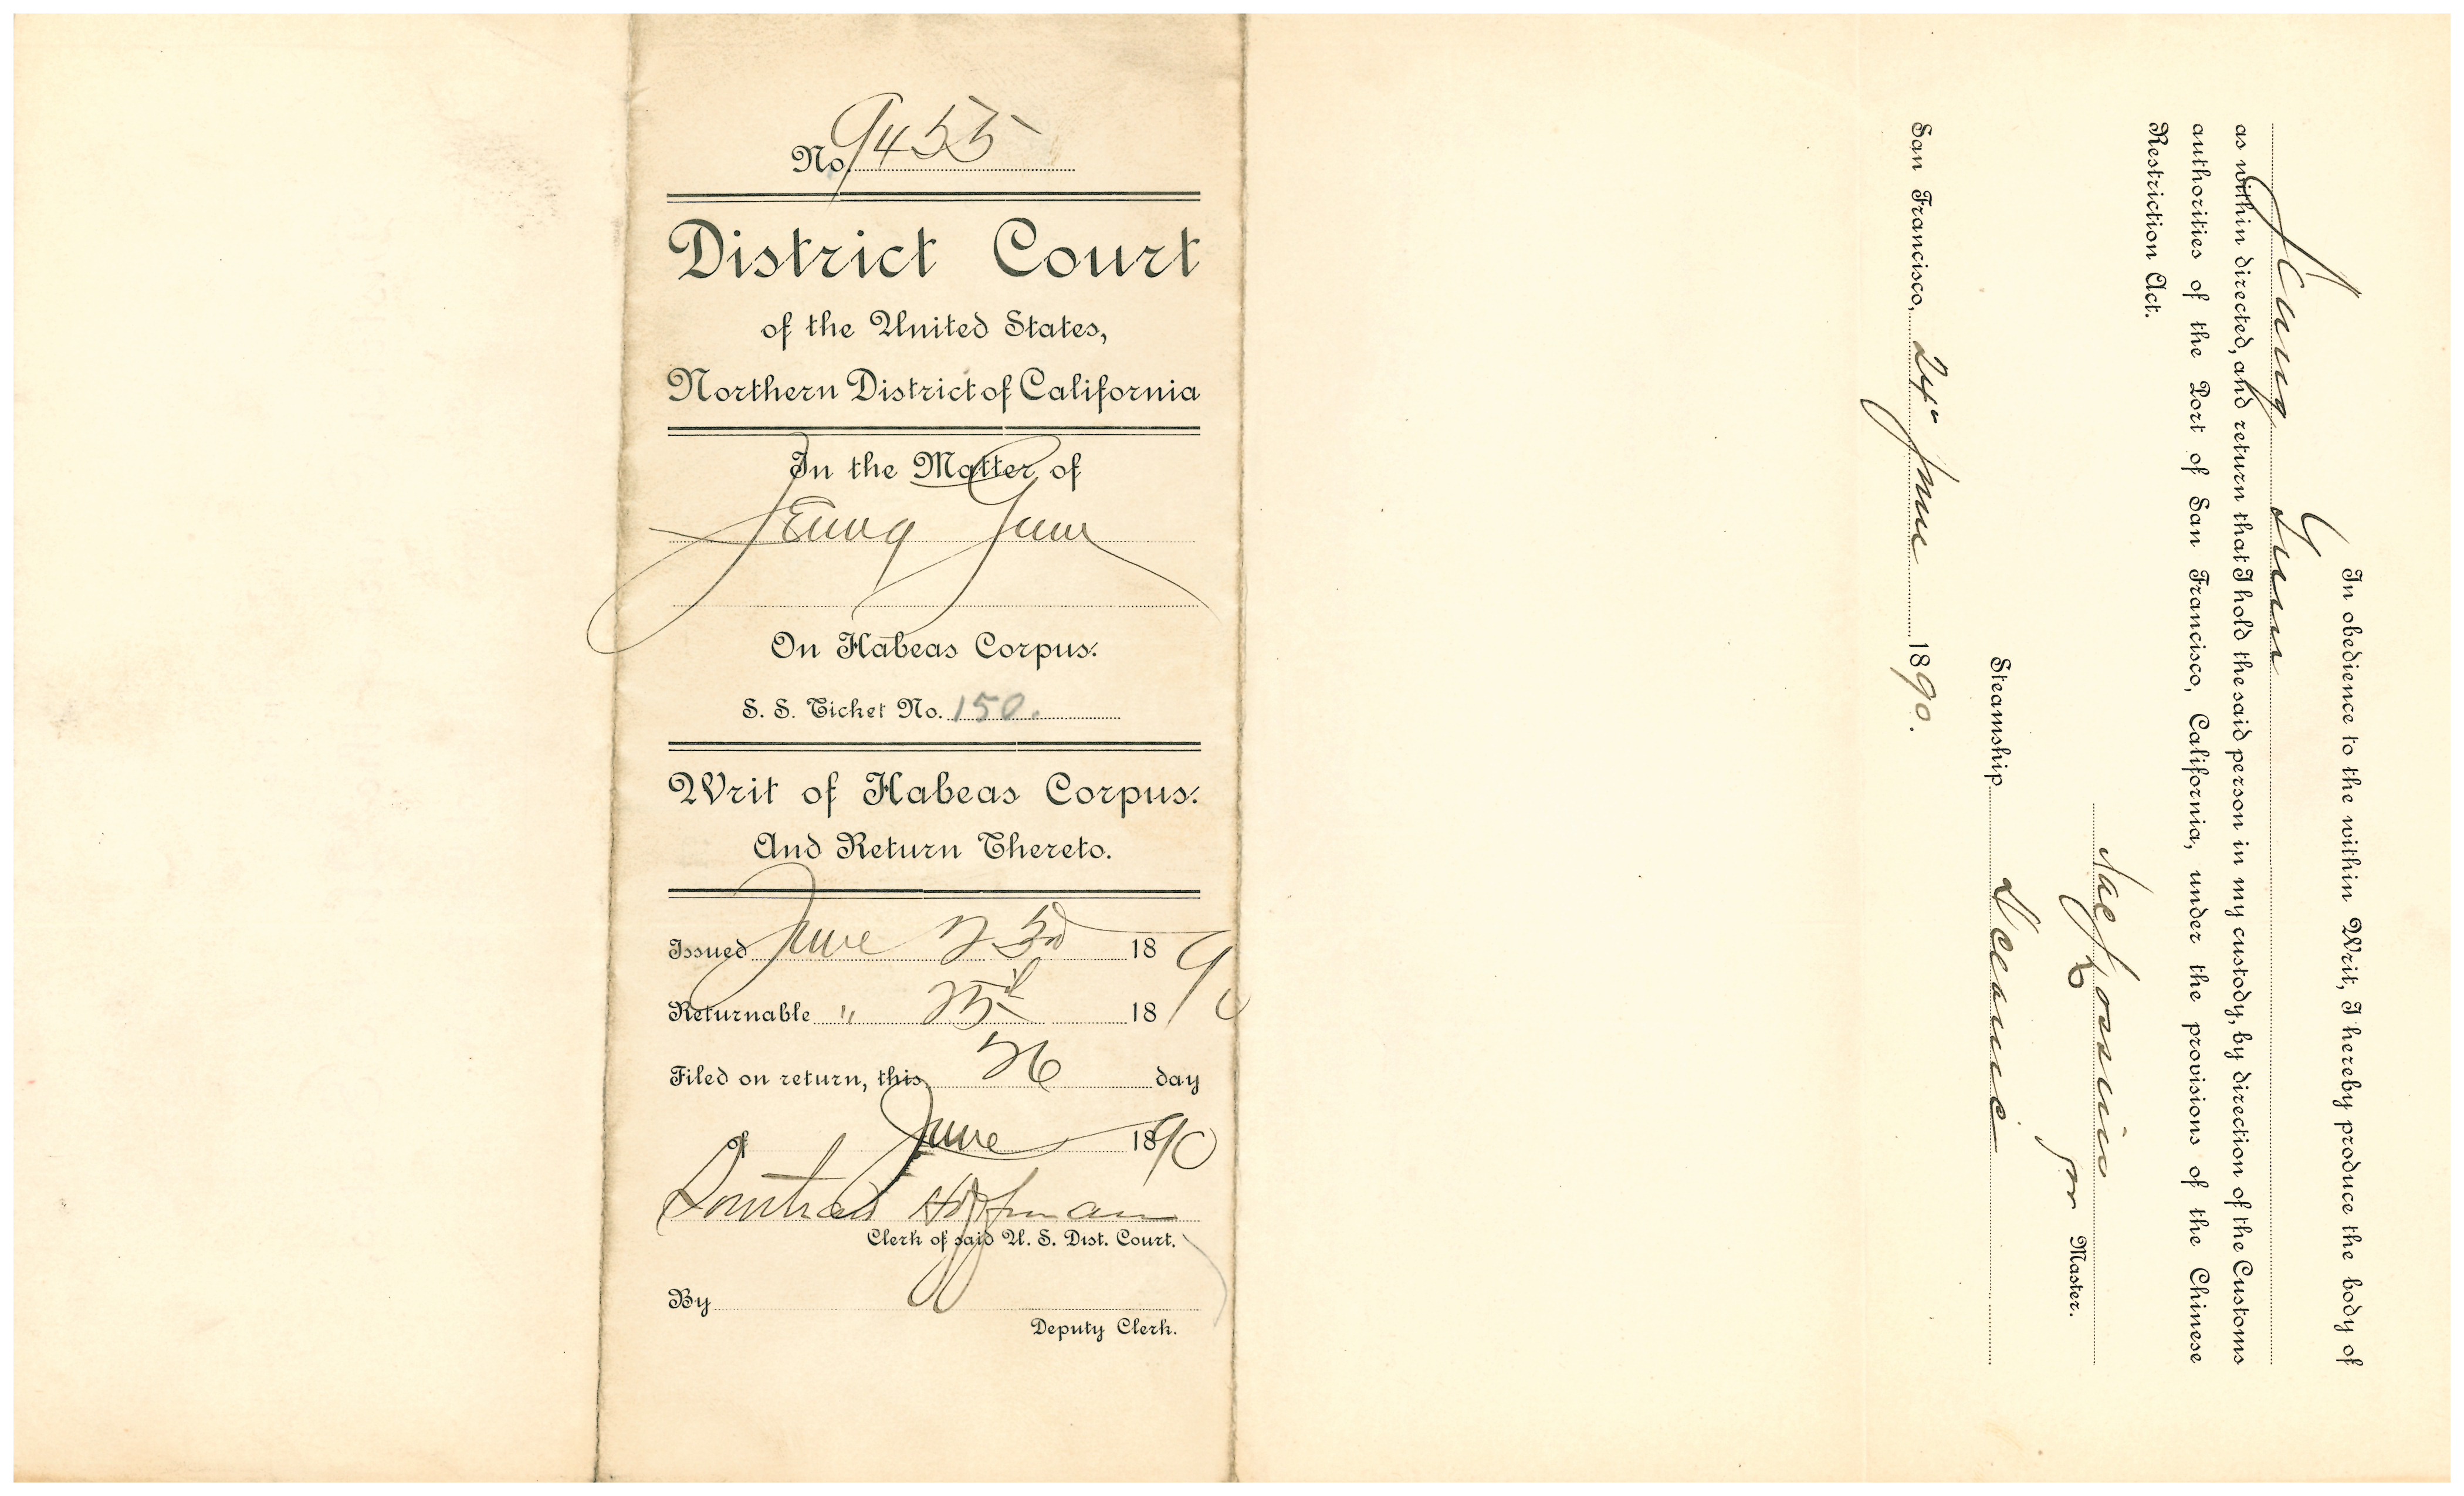 No. 9455
District Court
of the United States,
Northern District of California
In the Matter of
Jeung Jum
On Habeas Corpus.
S. S. Ticket No. 150.
Writ of Habeas Corpus.
And Return Thereto.
Issued June 23d 1890
Returnable " 25th 18
Filed on return, this 26 day
of June 1890
Southard Hoffman
Clerk of said U. S. Dist. Court.
By
Deputy Clerk.
In obedience to the within Writ, I hereby produce the body of
Jeung Jum
as within directed, and return that I hold the said person in my custody, by direction of the Customs
authorities of the Port of San Francisco, California, under the provisions of the Chinese
Restriction Act.
for Master.
Steamship Oceanic
San Francisco, 24" June 1890.